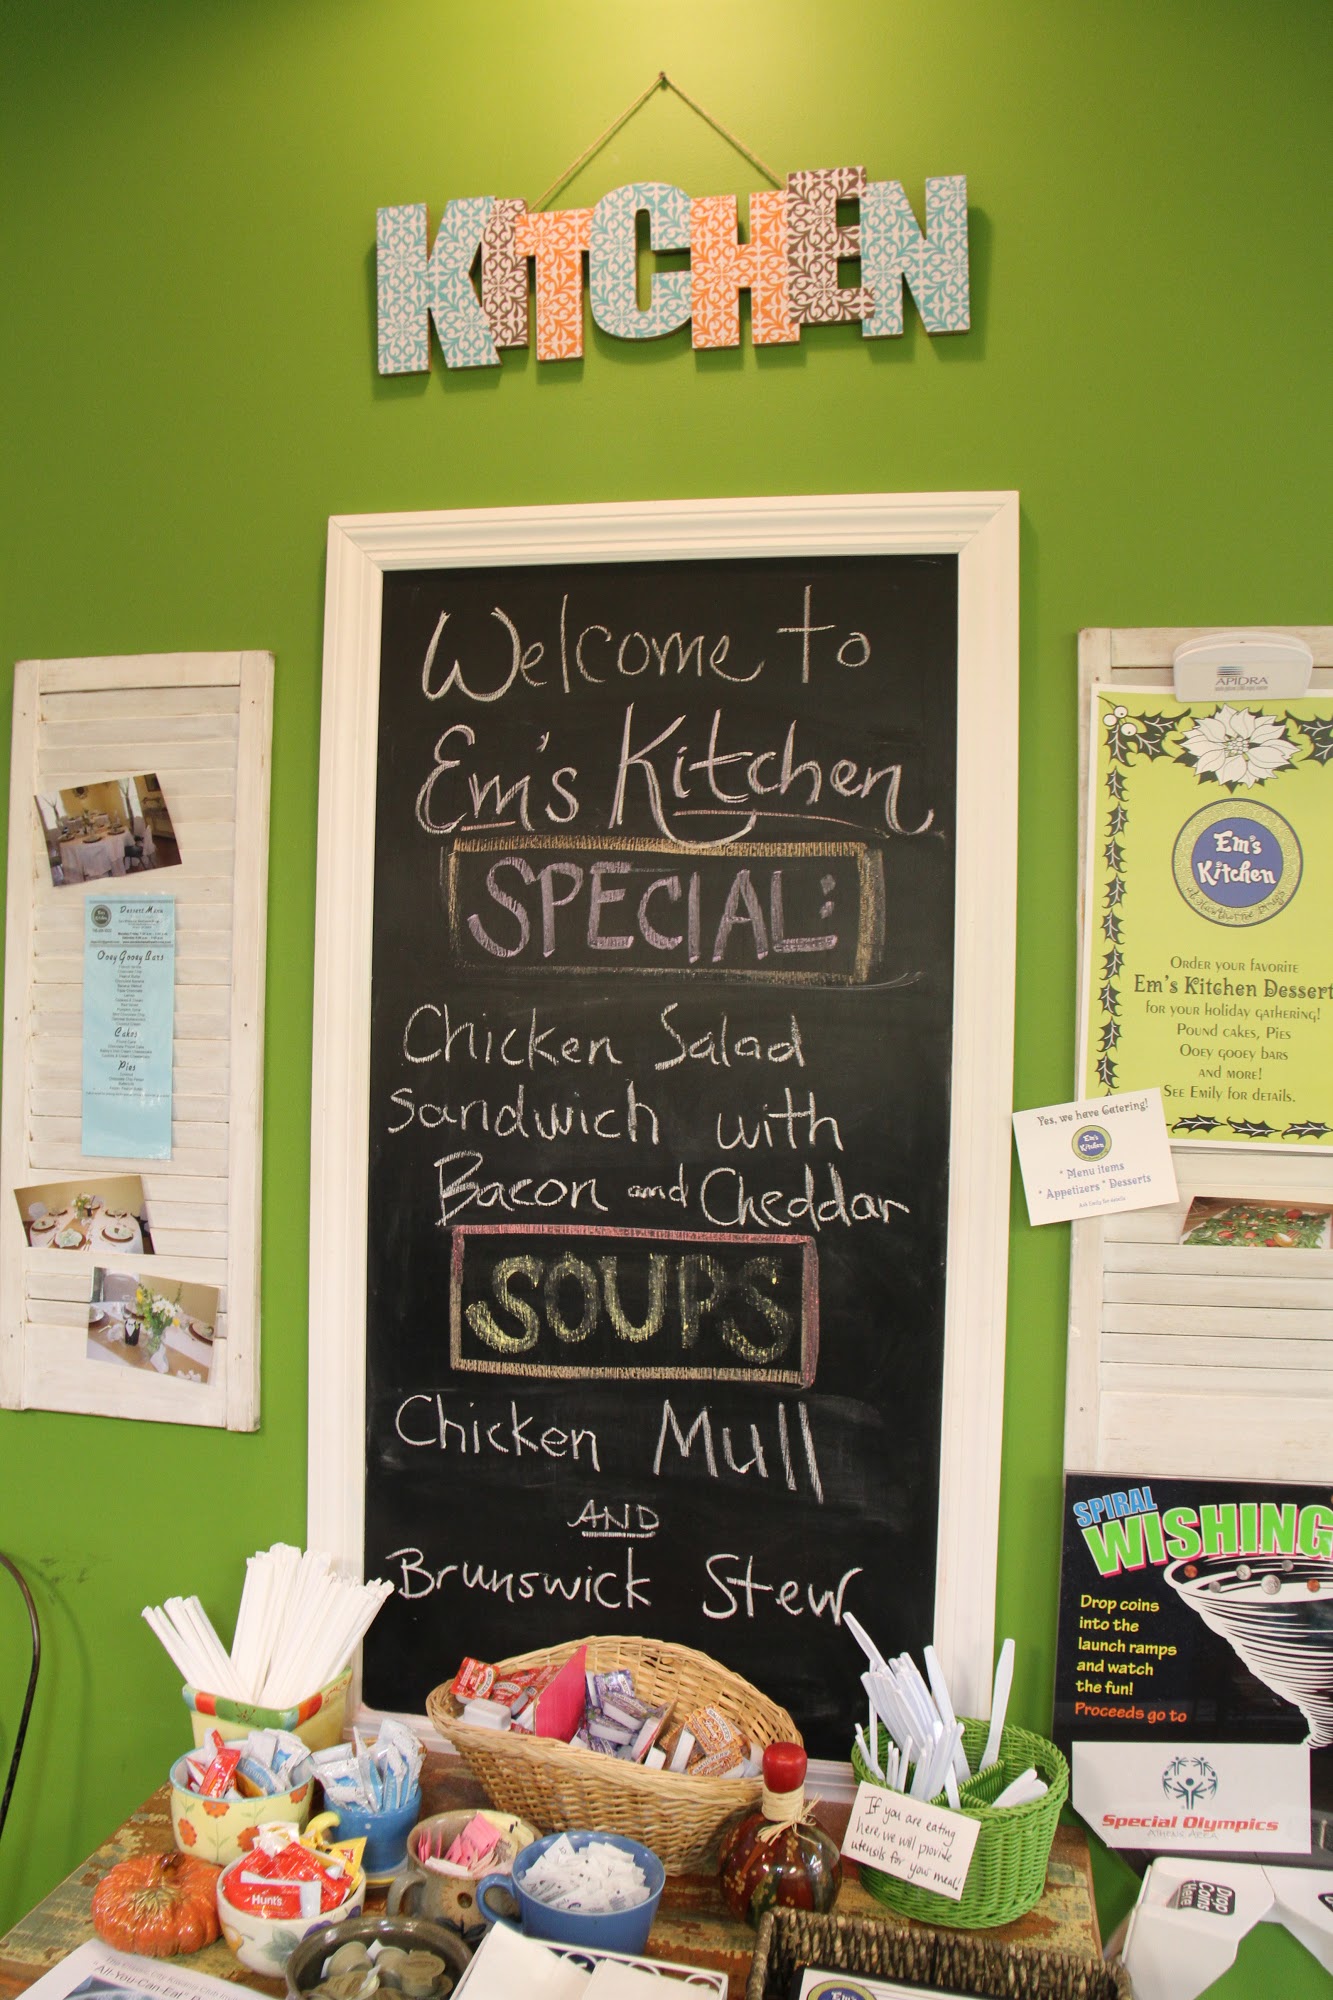 KITCHEN
Welcome to
Em's Kitchen
SPECIAL:
Chicken Salad
Sandwich with
Bacon and Cheddar
SOUPS
Chicken Mull
AND
Brunswick Stew
Dessert Menu
Ooey Gooey Bars
Cakes
Pies
APIDRA
Em's
Kitchen
Order your favorite
Em's Kitchen Dessert
for your holiday gathering!
Pound cakes, Pies
Ooey gooey bars
and more!
See Emily for details.
Yes, we have Catering!
Em's
Kitchen
* Menu items
* Appetizers * Desserts
Ask Emily for details
SPIRAL
WISHING
Drop coins
into the
launch ramps
and watch
the fun!
Proceeds go to
Special Olympics
ATHENS AREA
Drop
Coins
Here
If you are eating
here, we will provide
utensils for your meal!
Hunt's
"All-You-Can-Eat"